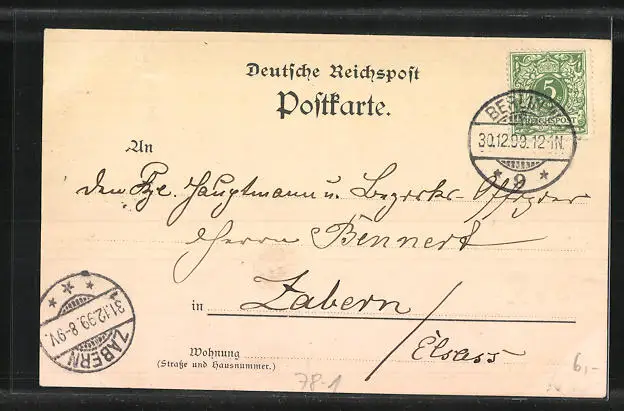 Deutsche Reichspost
Postkarte.
5
REICHSPOST
BERLIN
30.12.99.12-1N.
* 9 *
An
den Kgl. Hauptmann u. Bezirks-Offizier
Herrn Bennert
in Zabern /
Elsass
Wohnung
(Straße und Hausnummer.)
31.12.99.8-9V.
ZABERN
78-1
6,-